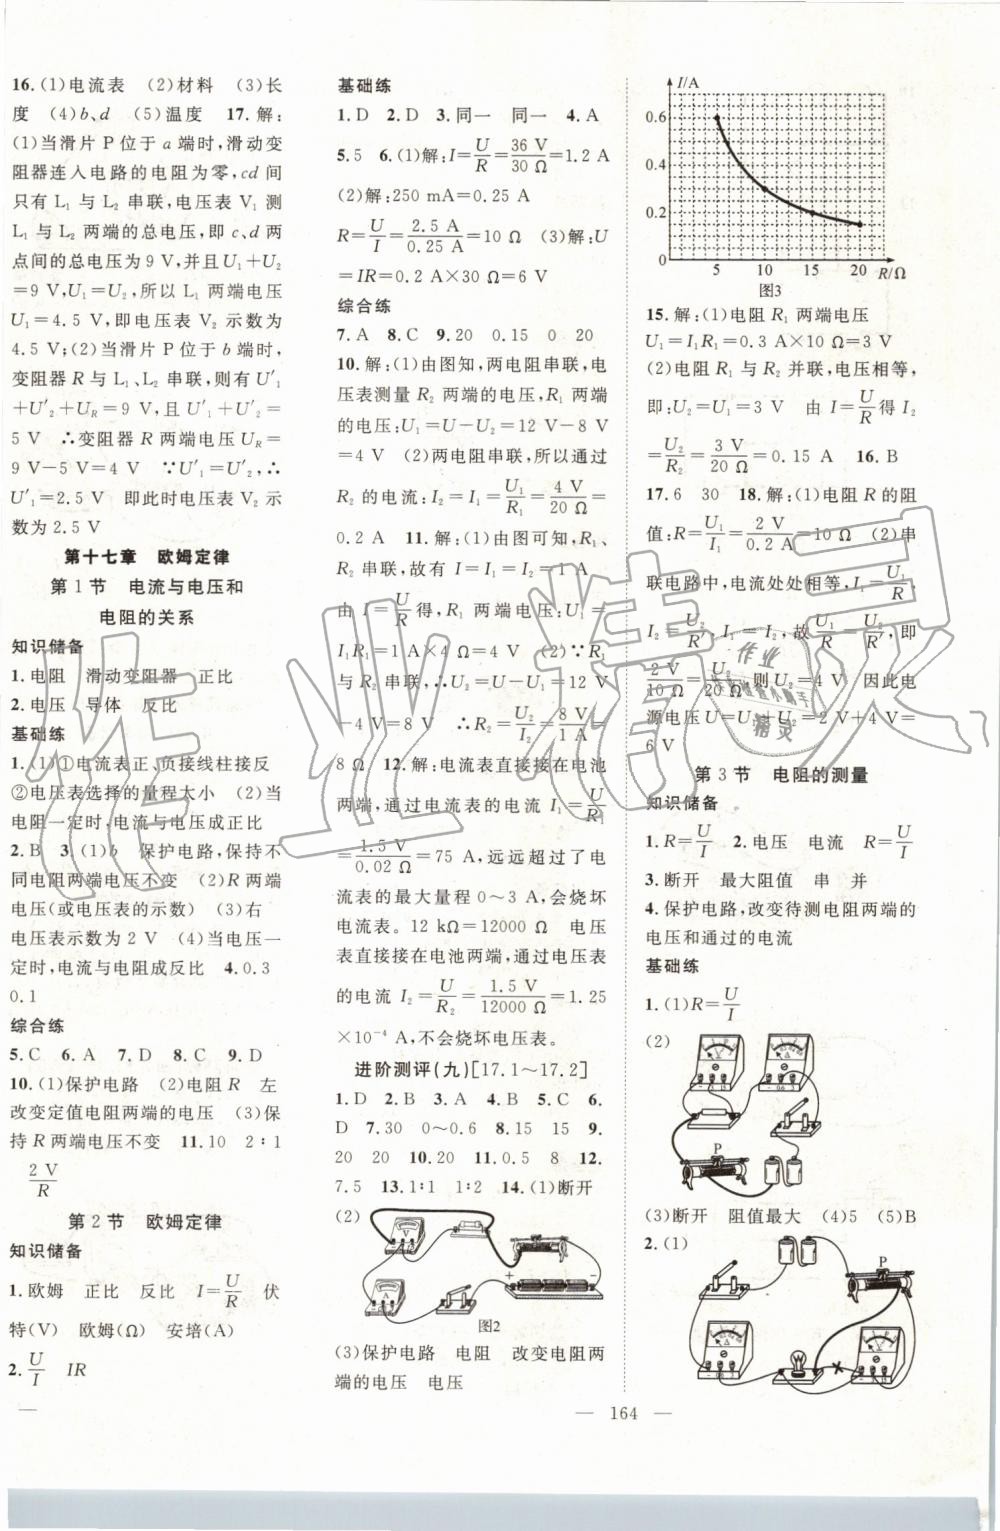 16.(1)电流表 (2)材料 (3)长
度 (4)b、d (5)温度 17.解:
(1)当滑片 P 位于 a 端时,滑动变
阻器连入电路的电阻为零,cd 间
只有 L₁ 与 L₂ 串联,电压表 V₁ 测
L₁ 与 L₂ 两端的总电压,即 c、d 两
点间的总电压为 9 V,并且U₁+U₂
=9 V,U₁=U₂,所以 L₁ 两端电压
U₁=4.5 V,即电压表 V₂ 示数为
4.5 V;(2)当滑片 P 位于 b 端时,
变阻器 R 与 L₁、L₂ 串联,则有 U′₁
+U′₂+U_R=9 V,且 U′₁+U′₂=
5 V ∴变阻器 R 两端电压 U_R=
9 V-5 V=4 V ∵U′₁=U′₂,∴
U′₁=2.5 V 即此时电压表 V₂ 示
数为 2.5 V
第十七章 欧姆定律
第 1 节 电流与电压和
电阻的关系
知识储备
1.电阻 滑动变阻器 正比
2.电压 导体 反比
基础练
1.(1)①电流表正、负接线柱接反
②电压表选择的量程太小 (2)当
电阻一定时,电流与电压成正比
2.B 3.(1)b 保护电路,保持不
同电阻两端电压不变 (2)R 两端
电压(或电压表的示数) (3)右
电压表示数为 2 V (4)当电压一
定时,电流与电阻成反比 4.0.3
0.1
综合练
5.C 6.A 7.D 8.C 9.D
10.(1)保护电路 (2)电阻 R 左
改变定值电阻两端的电压 (3)保
持 R 两端电压不变 11.10 2∶1
2 V/R
第 2 节 欧姆定律
知识储备
1.欧姆 正比 反比 I=U/R 伏
特(V) 欧姆(Ω) 安培(A)
2.U/I IR
基础练
1.D 2.D 3.同一 同一 4.A
5.5 6.(1)解:I=U/R=36 V/30 Ω=1.2 A
(2)解:250 mA=0.25 A
R=U/I=2.5 A/0.25 A=10 Ω (3)解:U
=IR=0.2 A×30 Ω=6 V
综合练
7.A 8.C 9.20 0.15 0 20
10.解:(1)由图知,两电阻串联,电
压表测量 R₂ 两端的电压,R₁ 两端
的电压:U₁=U-U₂=12 V-8 V
=4 V (2)两电阻串联,所以通过
R₂ 的电流:I₂=I₁=U₁/R₁=4 V/20 Ω=
0.2 A 11.解:(1)由图可知,R₁、
R₂ 串联,故有 I=I₁=I₂=1 A
由 I=U/R得,R₁ 两端电压:U₁=
I₁R₁=1 A×4 Ω=4 V (2)∵R₁
与 R₂ 串联,∴U₂=U-U₁=12 V
-4 V=8 V ∴R₂=U₂/I₂=8 V/1 A=
8 Ω 12.解:电流表直接接在电池
两端,通过电流表的电流 I₁=U/R₁
=1.5 V/0.02 Ω=75 A,远远超过了电
流表的最大量程 0～3 A,会烧坏
电流表。12 kΩ=12000 Ω 电压
表直接接在电池两端,通过电压表
的电流 I₂=U/R₂=1.5 V/12000 Ω=1.25
×10⁻⁴ A,不会烧坏电压表。
进阶测评(九)[17.1～17.2]
1.D 2.B 3.A 4.B 5.C 6.
D 7.30 0～0.6 8.15 15 9.
20 20 10.20 11.0.5 8 12.
7.5 13.1∶1 1∶2 14.(1)断开
(2)
V
A
+ -
图2
(3)保护电路 电阻 改变电阻两
端的电压 电压
I/A
0.6
0.4
0.2
0
5 10 15 20 R/Ω
图3
15.解:(1)电阻 R₁ 两端电压
U₁=I₁R₁=0.3 A×10 Ω=3 V
(2)电阻 R₁ 与 R₂ 并联,电压相等,
即:U₂=U₁=3 V 由 I=U/R得 I₂
=U₂/R₂=3 V/20 Ω=0.15 A 16.B
17.6 30 18.解:(1)电阻 R 的阻
值:R=U₁/I₁=2 V/0.2 A=10 Ω (2)串
联电路中,电流处处相等,I₁=U₁/R,
I₂=U₂/R₂,I₁=I₂,故U₁/R=U₂/R₂,即
2 V/10 Ω=U₂/20 Ω,则 U₂=4 V 因此电
源电压 U=U₁+U₂=2 V+4 V=
6 V
第 3 节 电阻的测量
知识储备
1.R=U/I 2.电压 电流 R=U/I
3.断开 最大阻值 串 并
4.保护电路,改变待测电阻两端的
电压和通过的电流
基础练
1.(1)R=U/I
(2)
P
(3)断开 阻值最大 (4)5 (5)B
2.(1)
P
— 164 —
作业精灵
作业
精灵